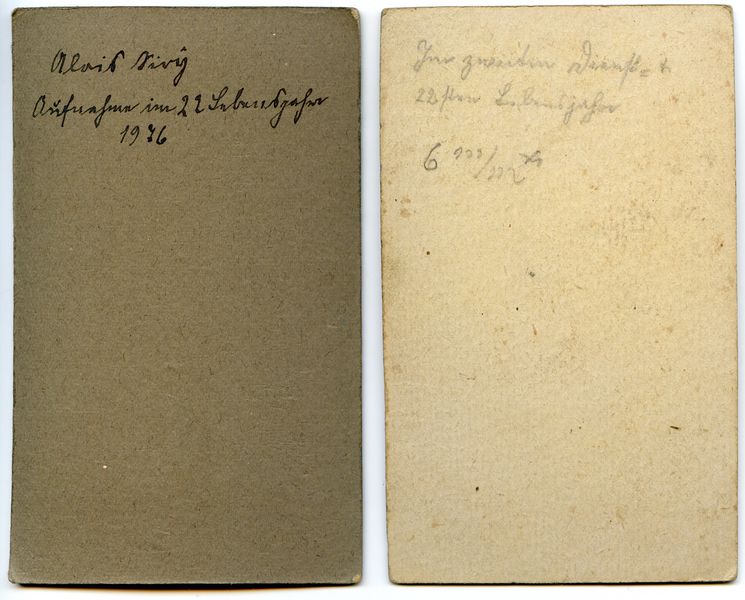 Alois Siry
Aufnahme im 22 Lebensjahr
1936
Im zweiten Dienst= +
22sten Lebensjahr
6